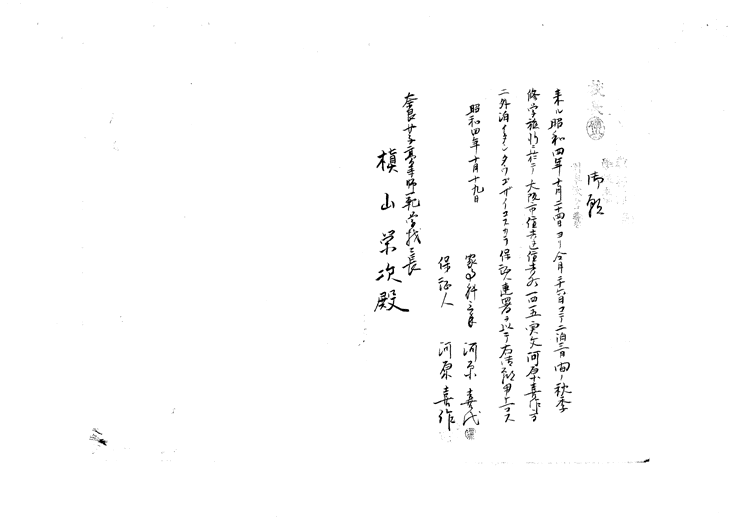 御願
来ル昭和四年十月二十四日ヨリ仝月二十六日マデ二泊三日間ノ秋季
修学旅行ニ於テ大阪市住吉区住吉町一四五実父河原喜作方
ニ外泊イタシタウゴザイマスカラ保証人連署ヲ以テ右御願申上マス
昭和四年十月十九日
家事科三年 河原喜代
保証人 河原喜作
奈良女子高等師範学校長
槙山栄次殿